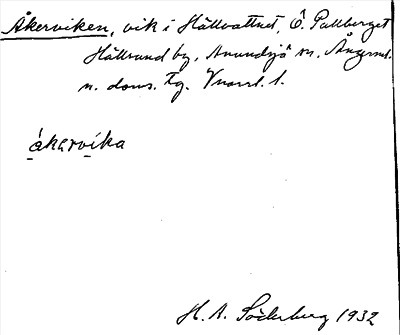 Åkerviken, vik i Hällvattnet, Ö. Pallberget
Hällsand by, Anundsjö sn, Ångerml.
n. doms. tg. Vnorrl. l.
åkarvika
H. A. Söderberg 1932